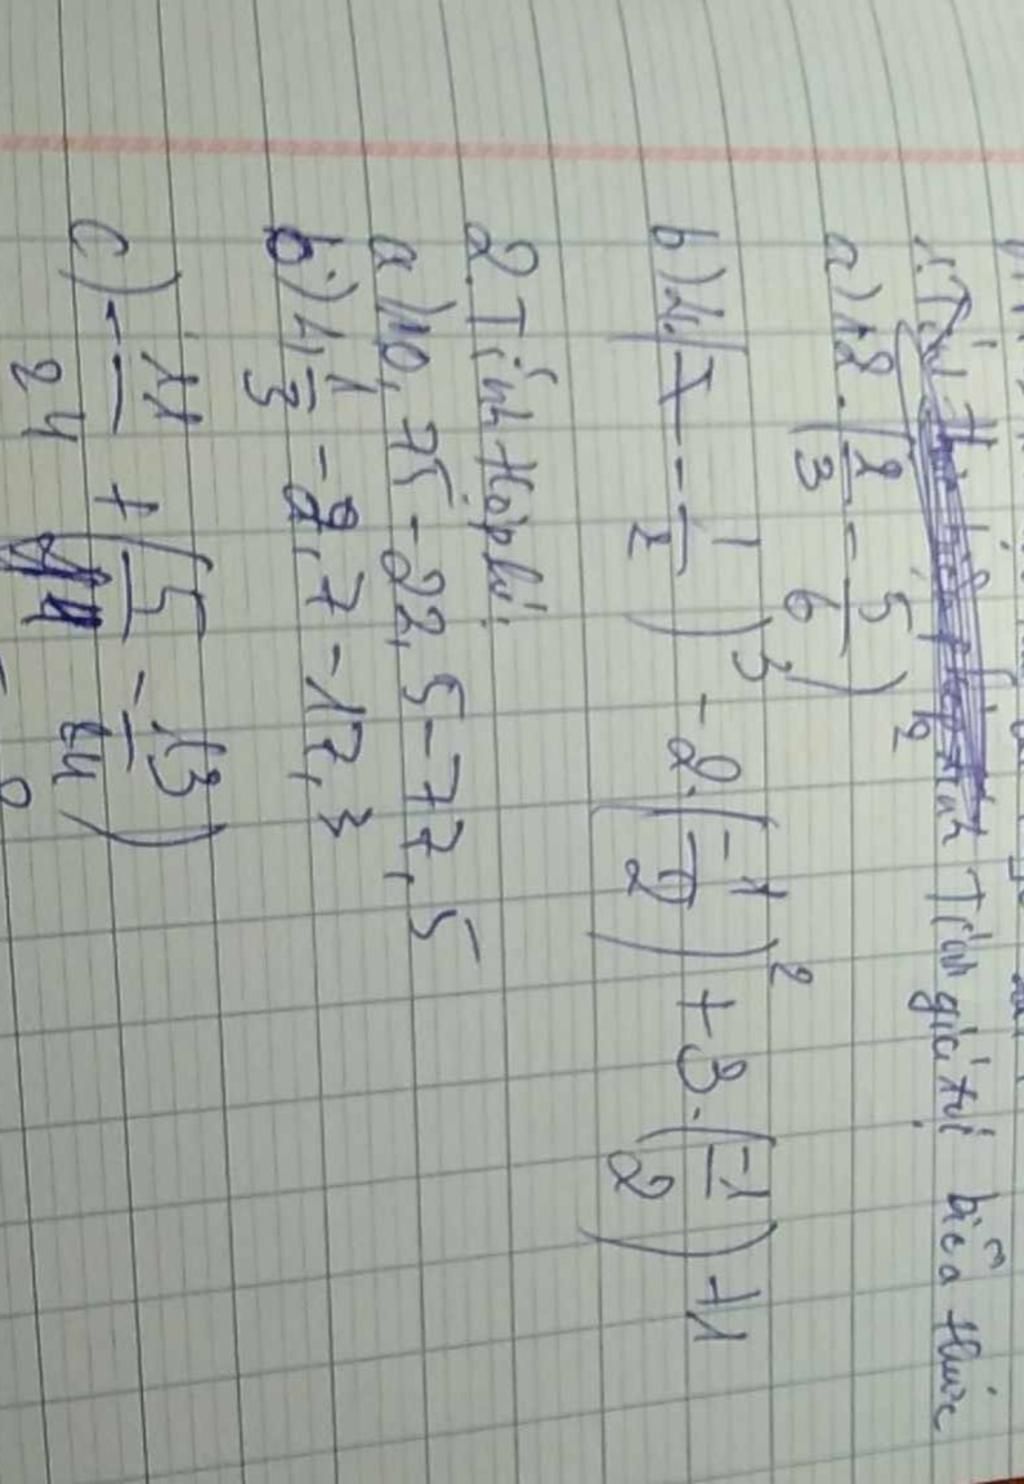 Tính giá trị biểu thức
a) 18.(2/3 - 5/6)²
b) 4.( - 1/2)³ - 2.(-1/2)² + 3.(-1/2) + 1
2. Tính Hợp lí.
a) 10,75 - 22,5 - 77,5
b) 4,1/3 - 2,7 - 17,3
c) - 11/24 + (5/ - 13/24)